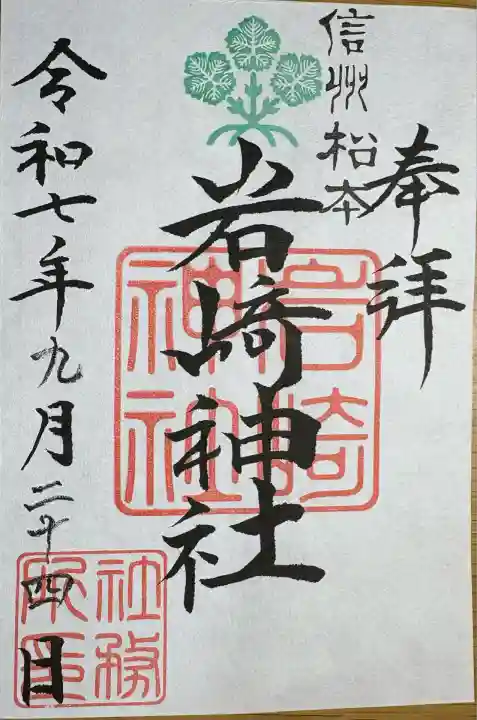 奉拝
信州松本
岩崎神社
岩崎
神社
令和七年九月二十四日
社務